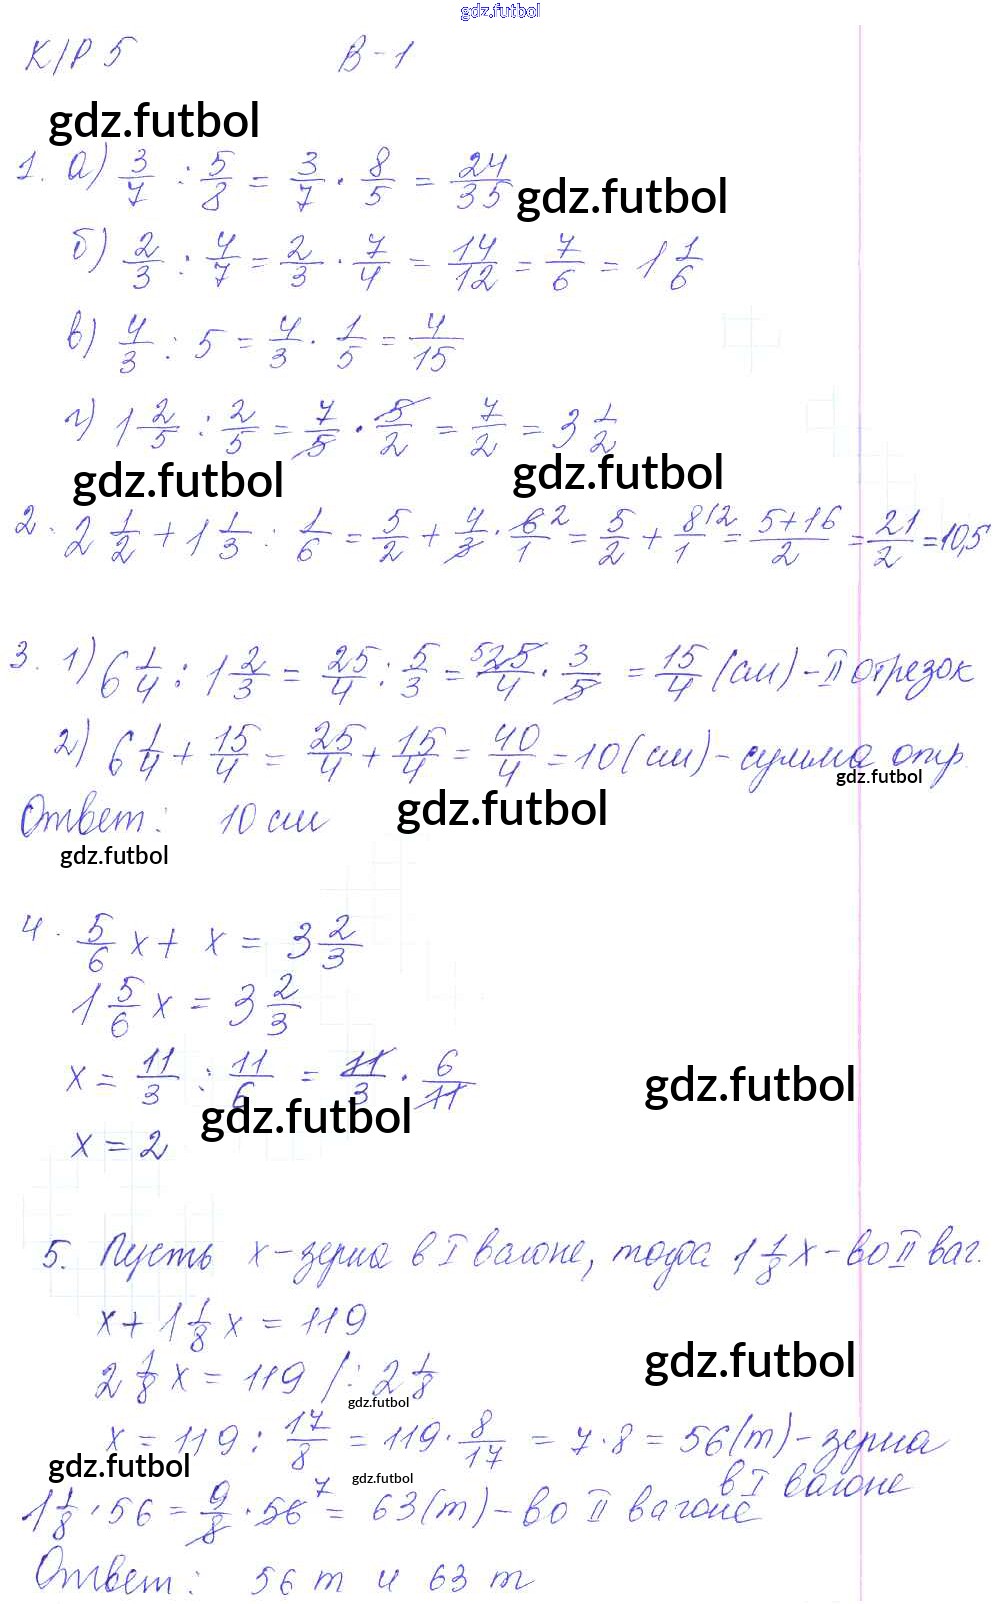 gdz.futbol
К/Р 5 В-1
gdz.futbol
1. а) 3/7 : 5/8 = 3/7 · 8/5 = 24/35
gdz.futbol
б) 2/3 : 4/7 = 2/3 · 7/4 = 14/12 = 7/6 = 1 1/6
в) 4/3 : 5 = 4/3 · 1/5 = 4/15
г) 1 2/5 : 2/5 = 7/5 · 5/2 = 7/2 = 3 1/2
gdz.futbol gdz.futbol
2. 2 1/2 + 1 1/3 : 1/6 = 5/2 + 4/3 · 6/1 2 = 5/2 + 8/1 \2 = 5+16/2 = 21/2 = 10,5
3. 1) 6 1/4 : 1 2/3 = 25/4 : 5/3 = 5 25/4 · 3/5 = 15/4 (см) - II отрезок
2) 6 1/4 + 15/4 = 25/4 + 15/4 = 40/4 = 10 (см) - сумма отр.
gdz.futbol
Ответ: 10 см
gdz.futbol
gdz.futbol
4. 5/6 x + x = 3 2/3
1 5/6 x = 3 2/3
x = 11/3 : 11/6 = 11/3 · 6/11
gdz.futbol
gdz.futbol
x = 2
5. Пусть x - зерна в I вагоне, тогда 1 1/8 x - во II ваг.
x + 1 1/8 x = 119
2 1/8 x = 119 / : 2 1/8
gdz.futbol
gdz.futbol
x = 119 : 17/8 = 119 · 8/17 = 7 · 8 = 56 (т) - зерна
в I вагоне
gdz.futbol
gdz.futbol
1 1/8 · 56 = 9/8 · 56 7 = 63 (т) - во II вагоне
Ответ: 56 т и 63 т